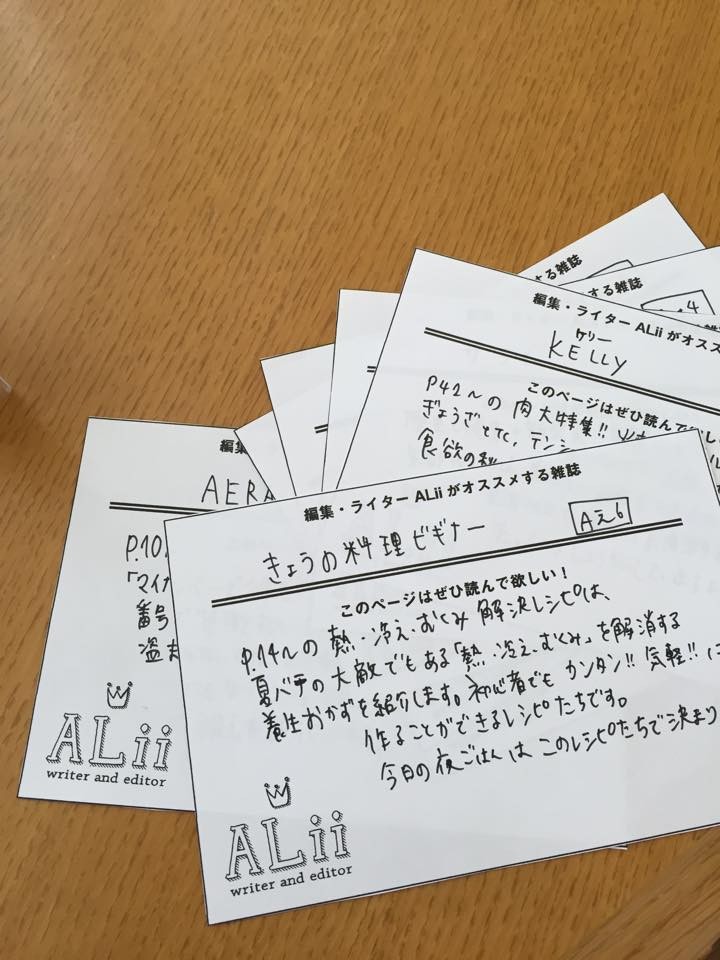 する雑誌
する雑誌
4
編集・ライターALiiがオススメ
ケリー
KELLY
このページはぜひ読んで欲し
P42〜の 肉大特集!!
ぎょうざとてて、テンシ
食欲の秋
編集
AERA
P.10
「マイナ
番号
盗ま
ALii
writer and editor
編集・ライターALiiがオススメする雑誌
きょうの料理ビギナー
Aえ6
このページはぜひ読んで欲しい!
P.14〜の 熱・冷え・むくみ 解決レシピは、
夏バテの大敵でもある「熱・冷え・むくみ」を解消する
養生おかずを紹介します。初心者でも カンタン!! 気軽!! に
作ることができるレシピたちです。
今日の夜ごはんは このレシピたちで決まり
ALii
writer and editor